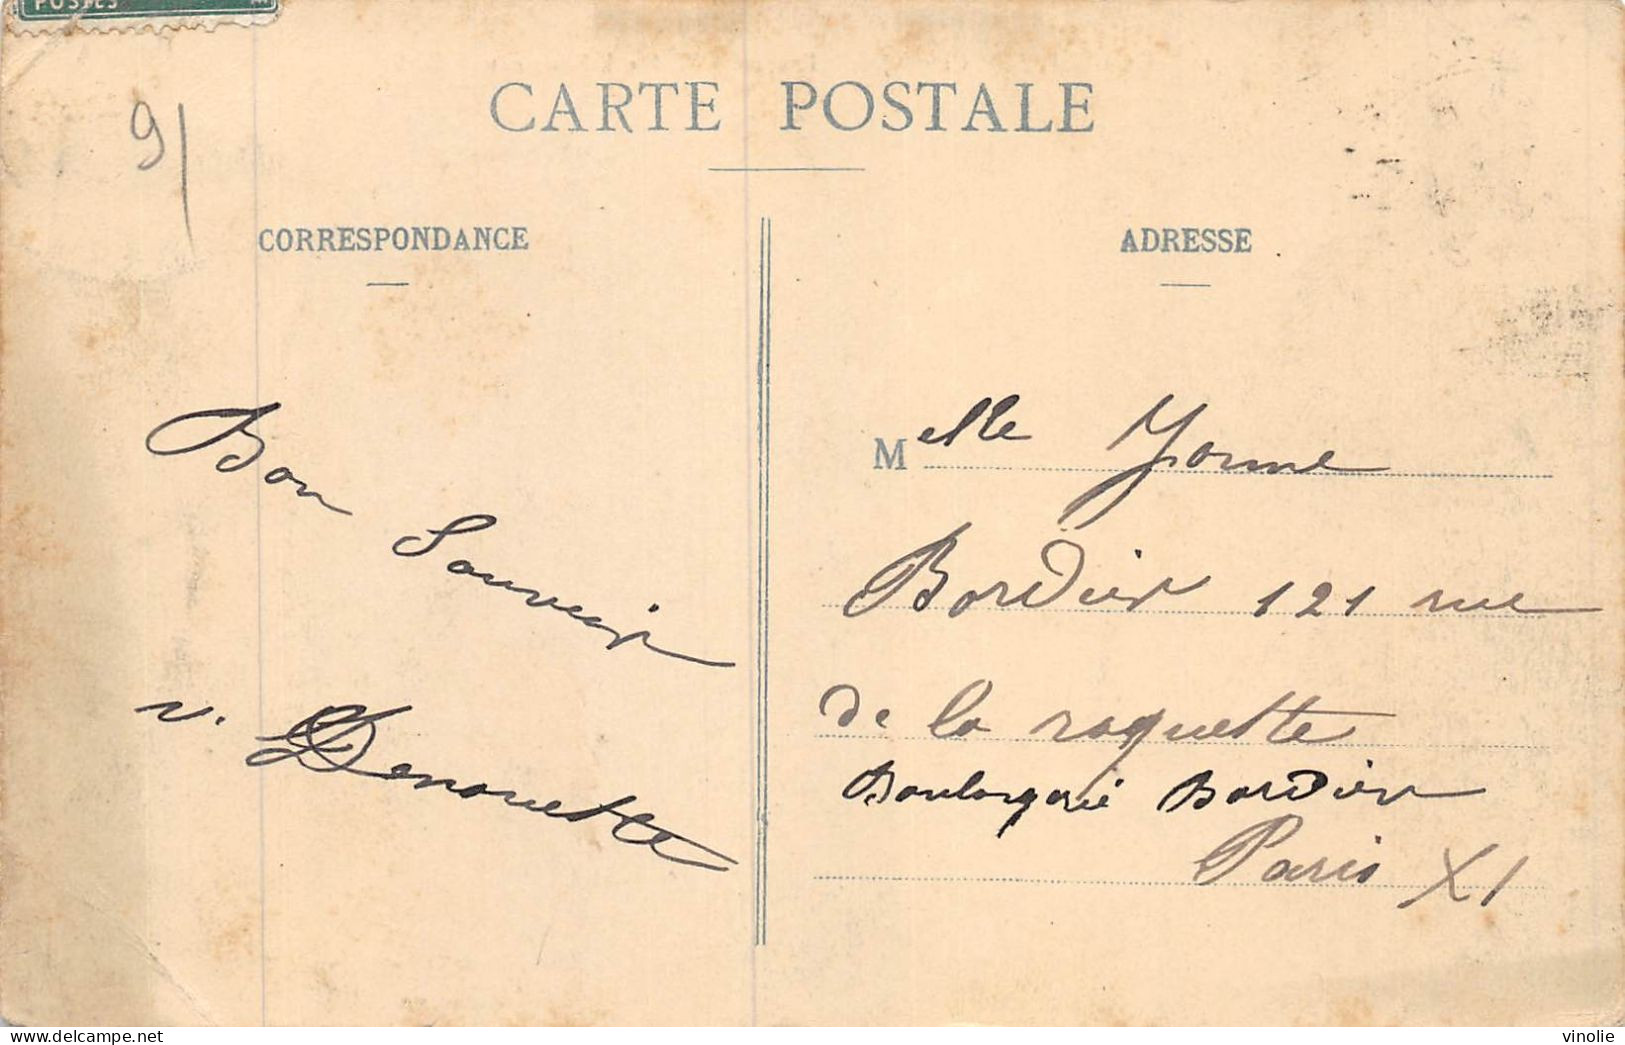 POSTES
CARTE POSTALE
91
CORRESPONDANCE
ADRESSE
Bon
Souvenir
v. Denouette
Melle Yvonne
Bordier 121 rue
de la roquette
Boulangerie Bordier
Paris XI
delcampe.net
vinolie